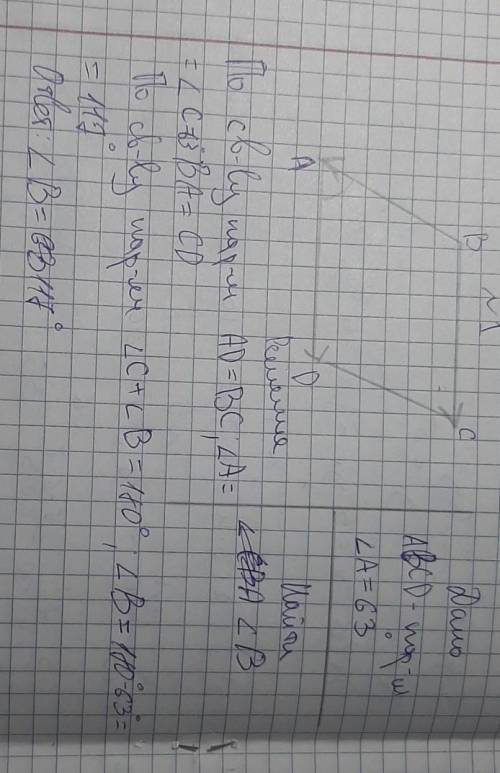 №1
Дано
ABCD - пар-м
∠A = 63°
Найти
∠B
B
C
A
D
Решение
По св-ву пар-м AD = BC; ∠A =
= ∠C BA = CD
По св-ву пар-м ∠C + ∠B = 180°; ∠B = 180° - 63° =
= 117°
Ответ: ∠B = 117°